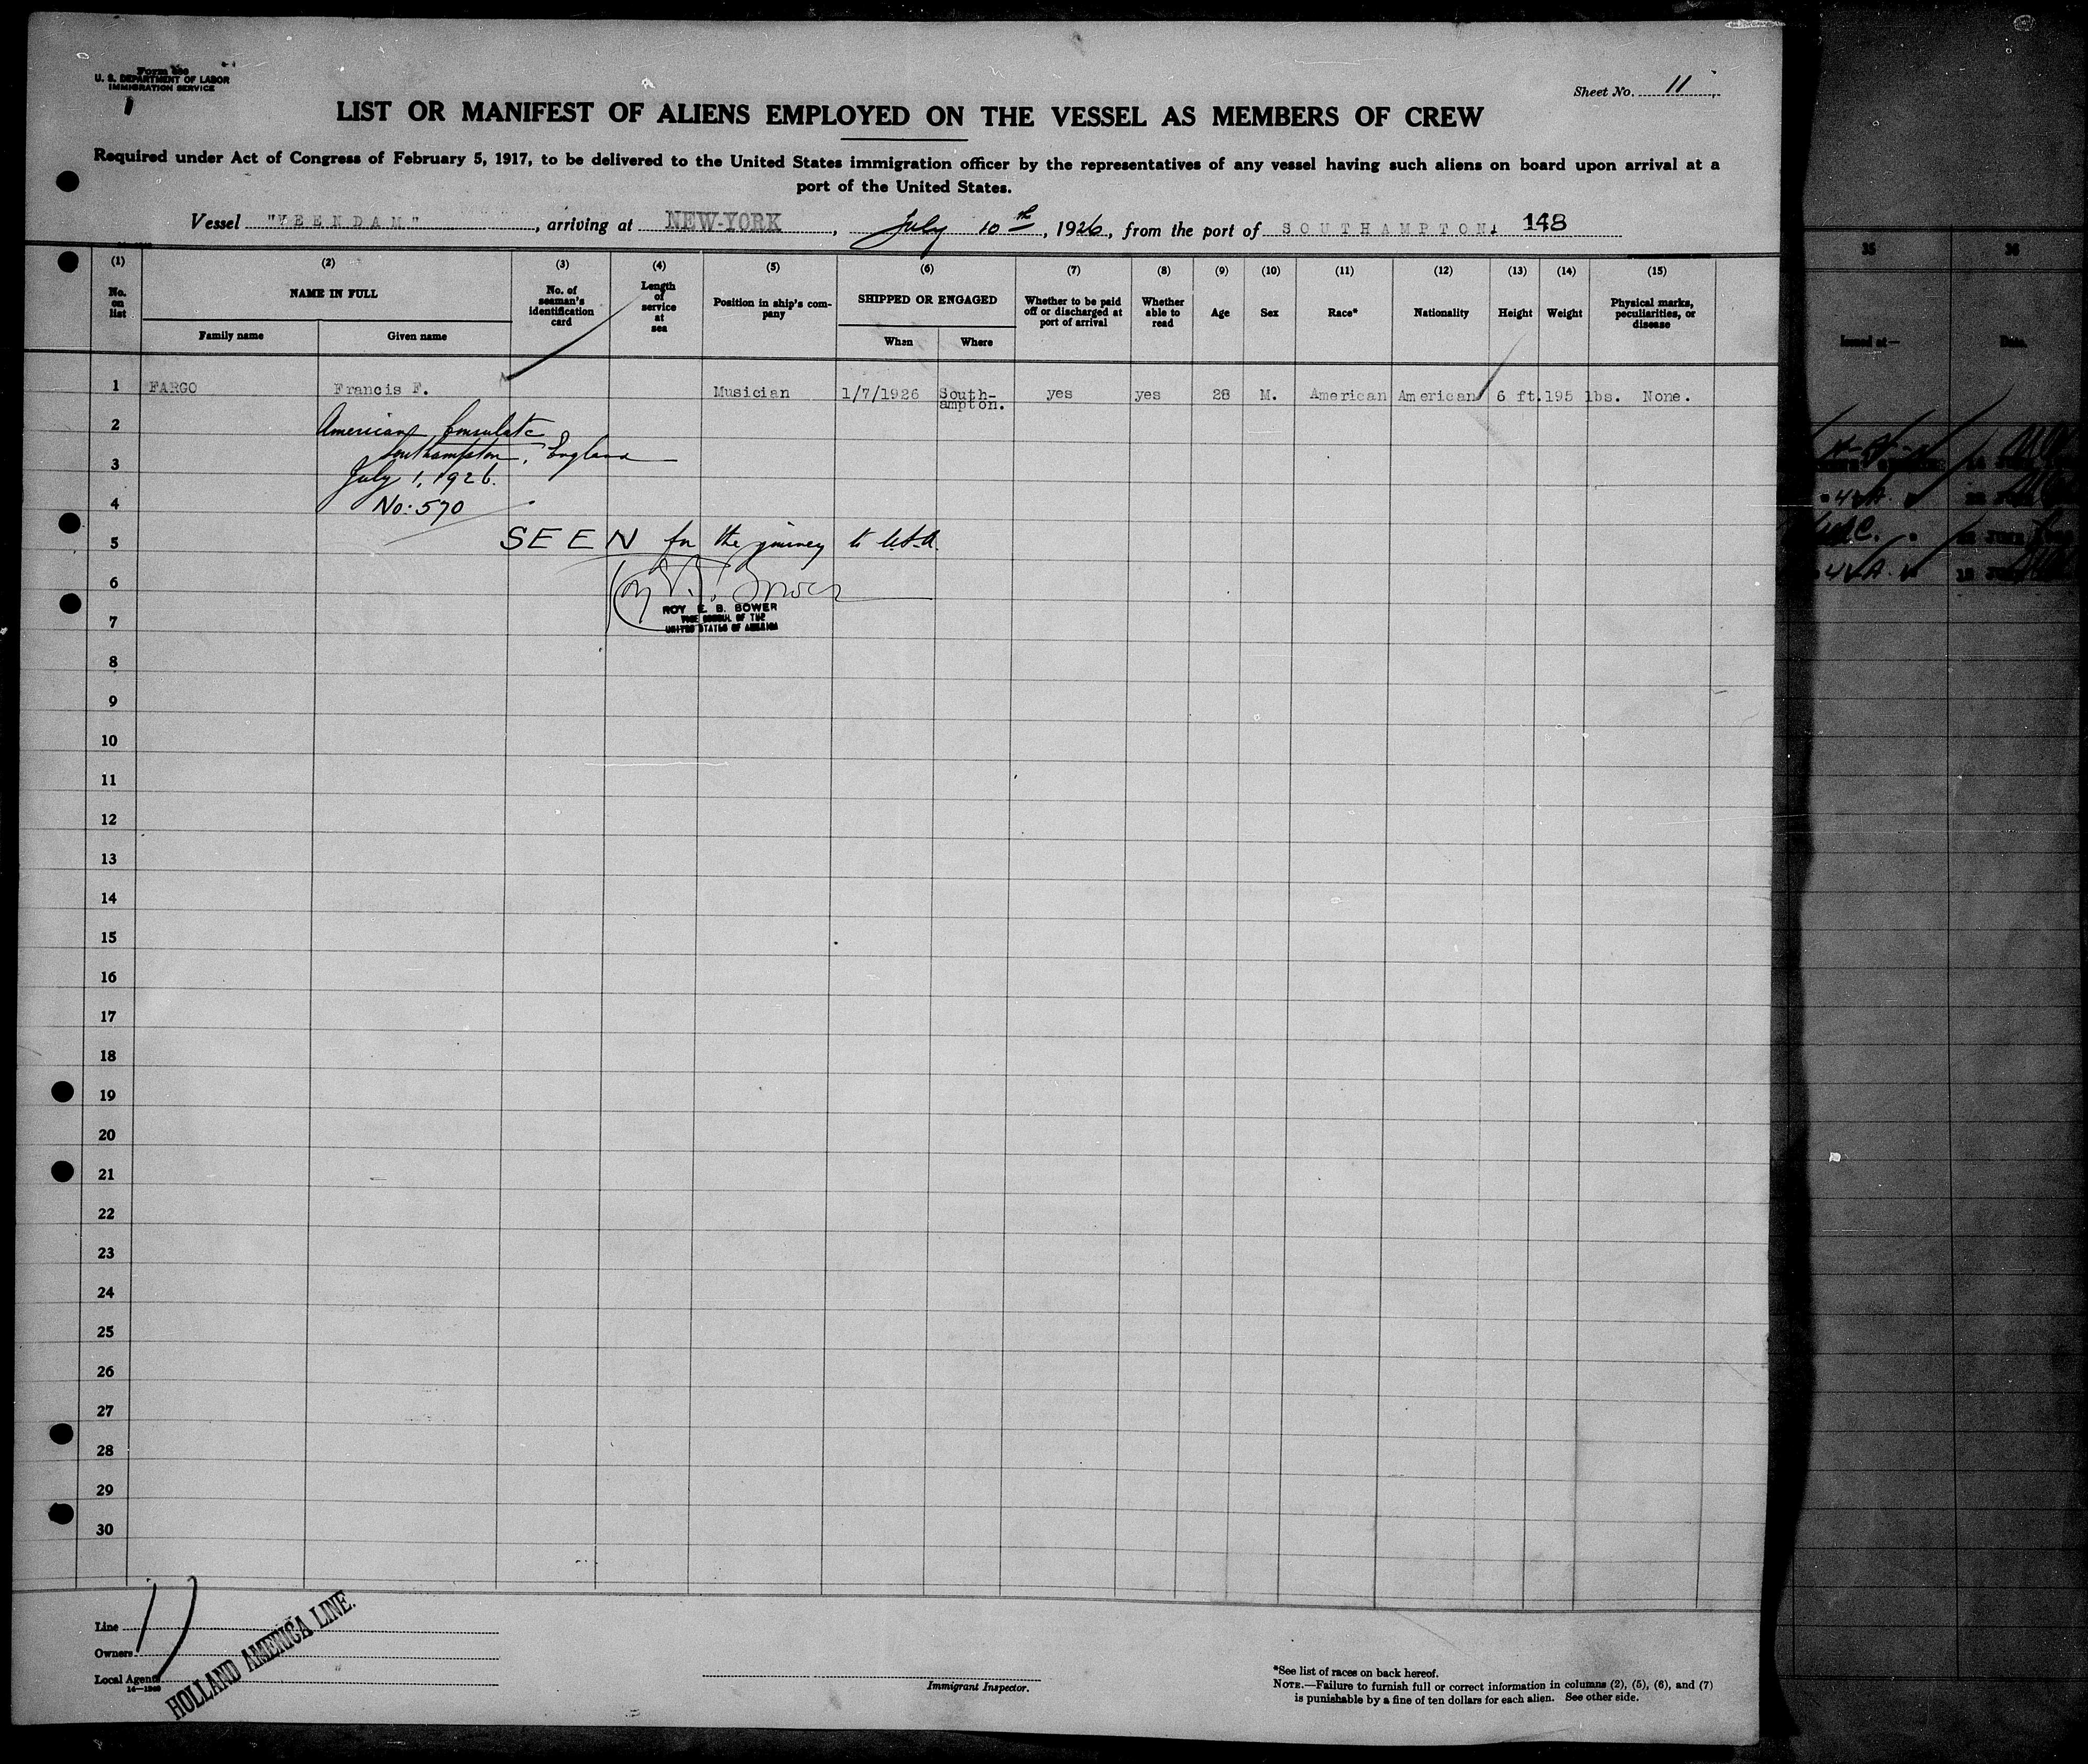 Form 689
U. S. DEPARTMENT OF LABOR
IMMIGRATION SERVICE
Sheet No. 11
LIST OR MANIFEST OF ALIENS EMPLOYED ON THE VESSEL AS MEMBERS OF CREW
Required under Act of Congress of February 5, 1917, to be delivered to the United States immigration officer by the representatives of any vessel having such aliens on board upon arrival at a
port of the United States.
Vessel "VEENDAM", arriving at NEW-YORK, July 10th, 1926, from the port of SOUTHAMPTON. 148
(1) (2) (3) (4) (5) (6) (7) (8) (9) (10) (11) (12) (13) (14) (15)
No. on list NAME IN FULL No. of seaman's identification card Length of service at sea Position in ship's company SHIPPED OR ENGAGED Whether to be paid off or discharged at port of arrival Whether able to read Age Sex Race* Nationality Height Weight Physical marks, peculiarities, or disease
Family name Given name When Where
1 FARGO Francis F. Musician 1/7/1926 South-ampton. yes yes 28 M. American American 6 ft. 195 lbs. None.
2 American Consulate
3 Southampton, England
July 1, 1926.
4 No. 570
5 SEEN for the journey to U.S.A.
6
ROY E. B. BOWER
VICE CONSUL OF THE
UNITED STATES OF AMERICA
7
8
9
10
11
12
13
14
15
16
17
18
19
20
21
22
23
24
25
26
27
28
29
30
Line
Owners
Local Agents
14—1240
HOLLAND AMERICA LINE.
Immigrant Inspector.
*See list of races on back hereof.
NOTE.—Failure to furnish full or correct information in columns (2), (5), (6), and (7)
is punishable by a fine of ten dollars for each alien. See other side.
35 36
Issued at— Date.